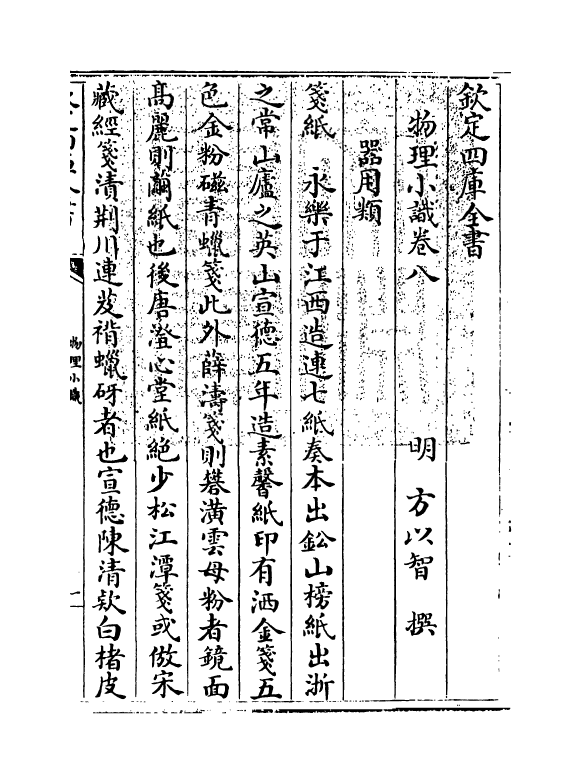 欽定四庫全書
物理小識卷八
明 方以智 撰
器用類
箋紙 永樂于江西造連七紙奏本出鉛山榜紙出浙
之常山廬之英山宣德五年造素馨紙印有洒金箋五
色金粉磁青蠟箋此外薛濤箋則礬潢雲母粉者鏡面
髙麗則繭紙也後唐澄心堂紙絶少松江潭箋或倣宋
藏經箋漬荆川連芨褙蠟砑者也宣德陳清欵白楮皮
物理小識